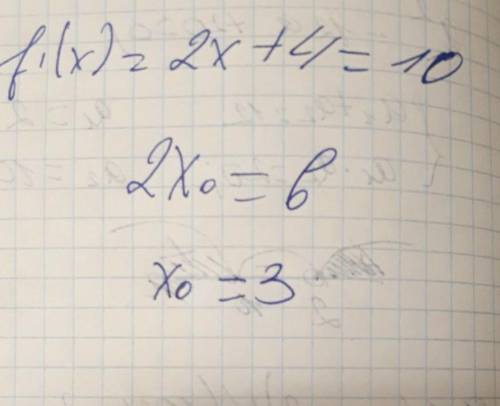 f'(x) = 2x + 4 = 10
2x₀ = 6
x₀ = 3